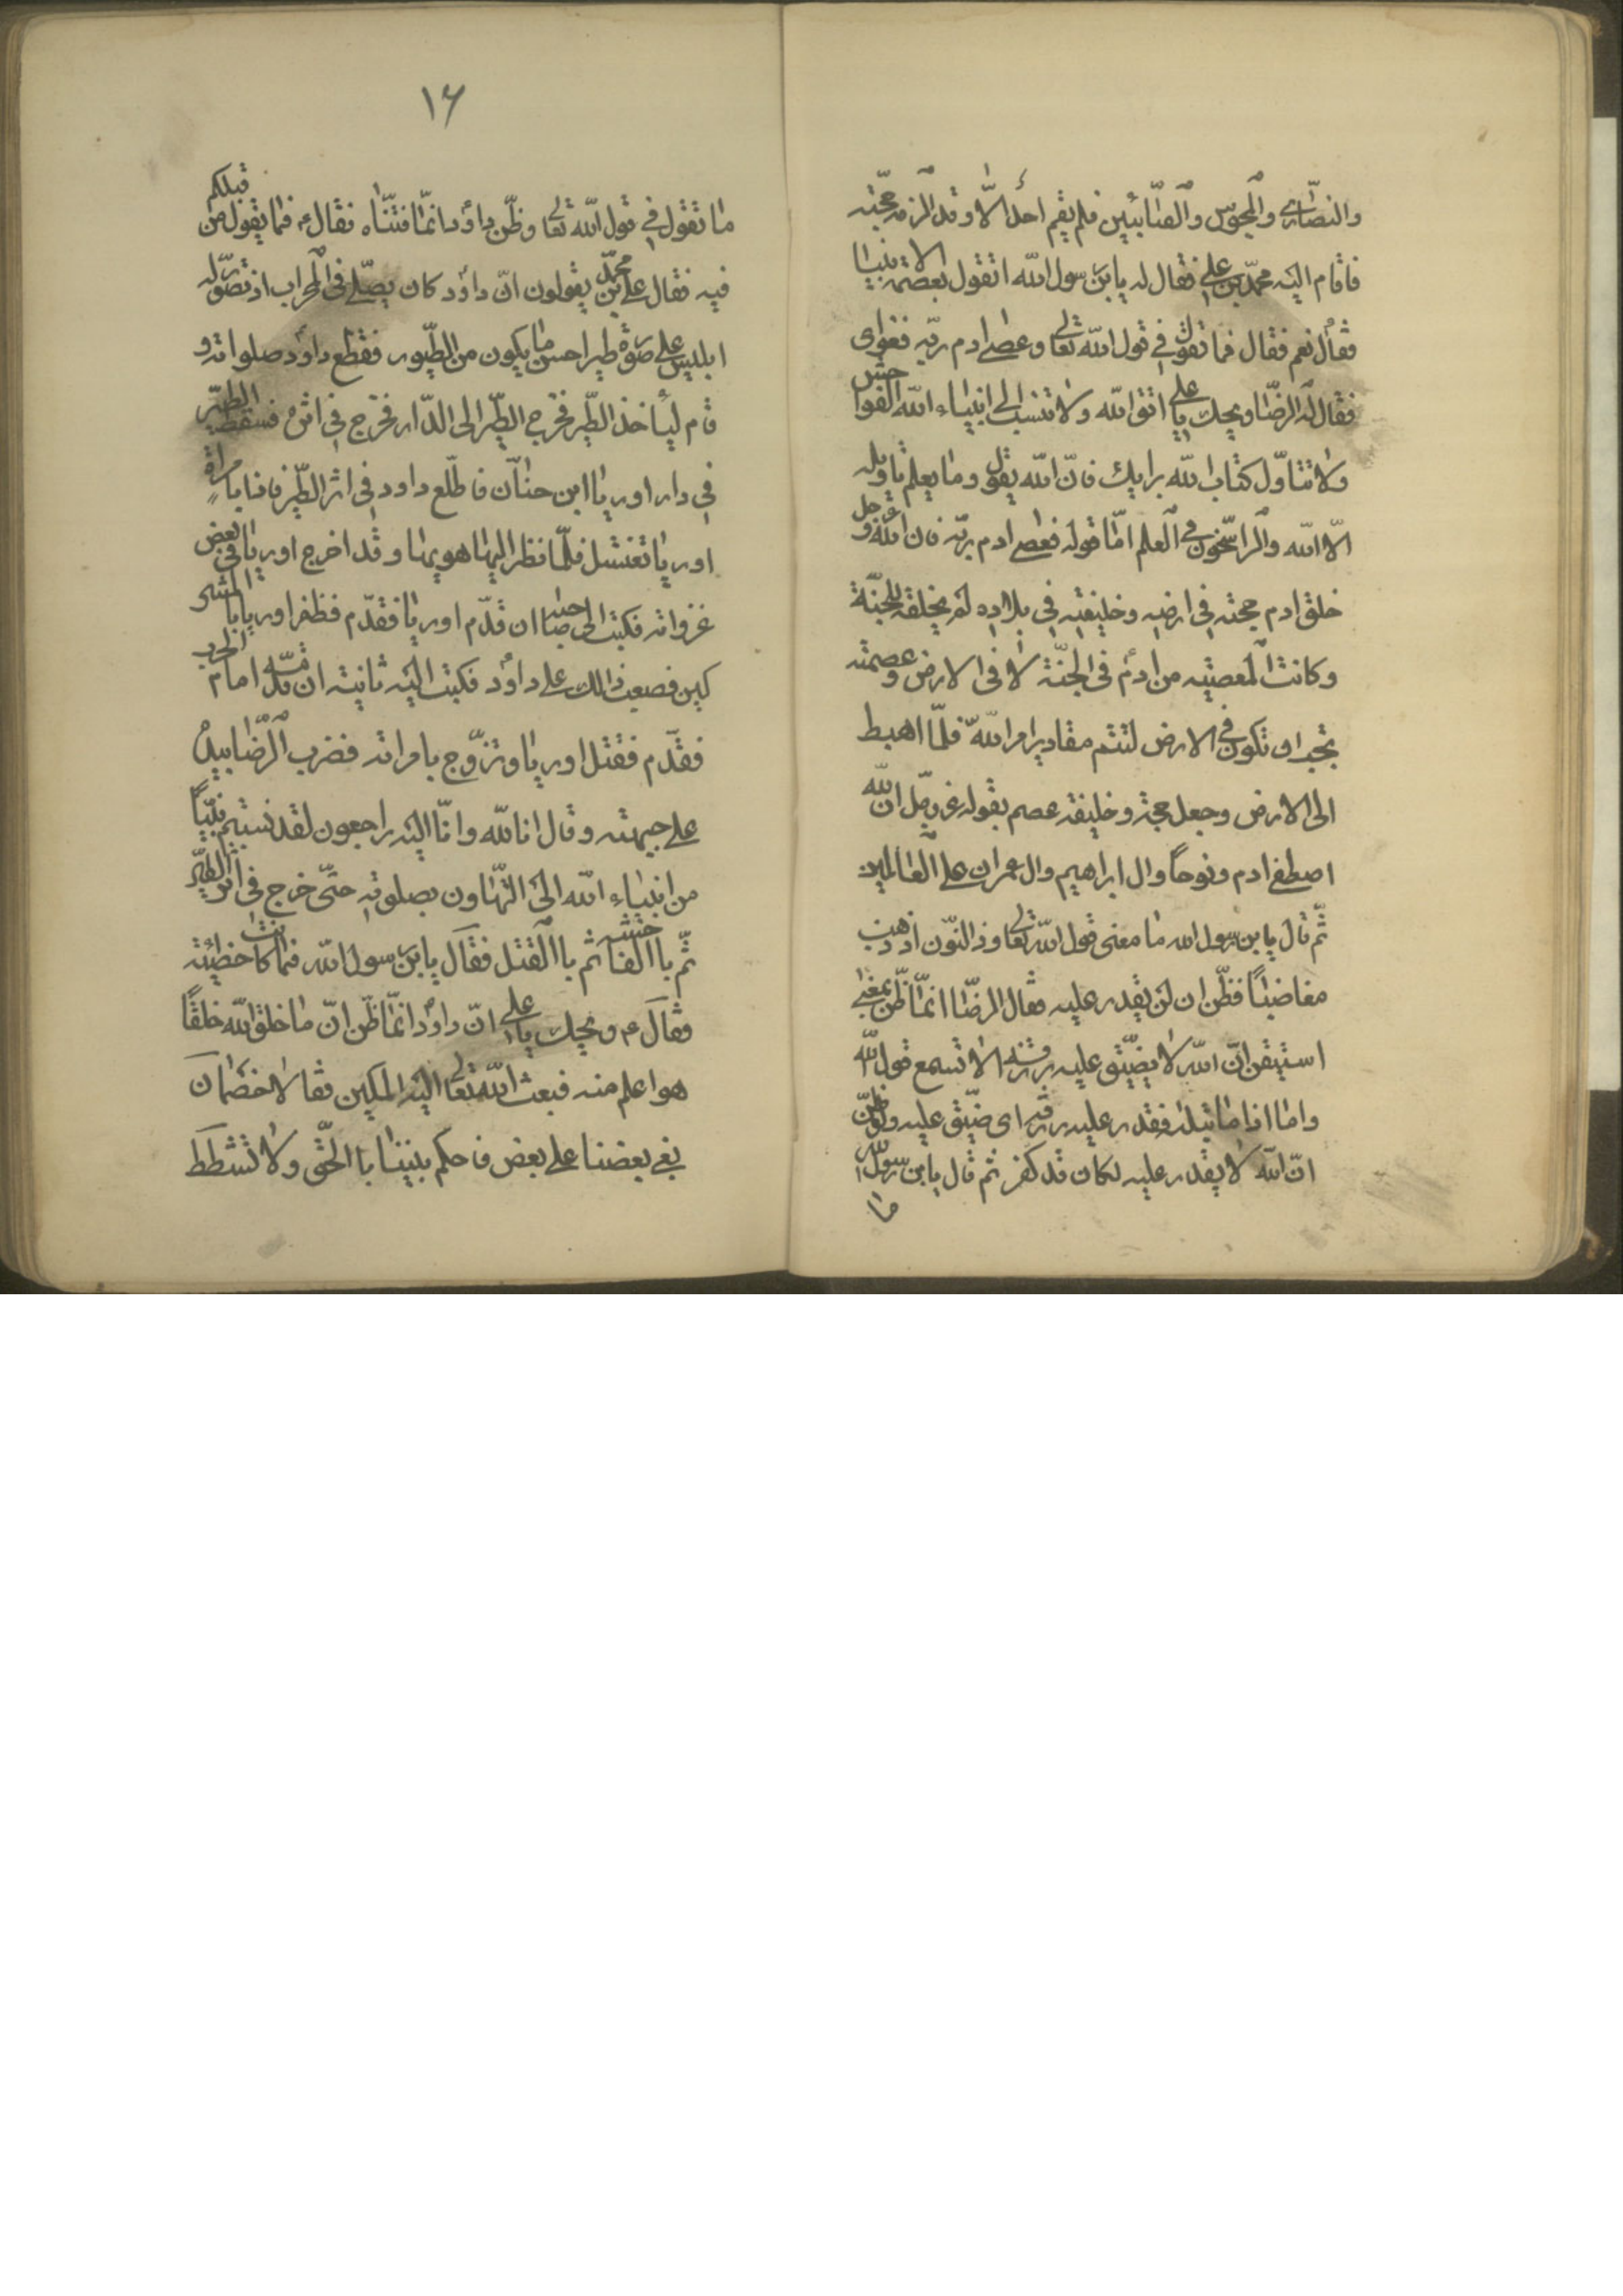 والنصاری والمجوس والصابئین فلم یقم احد الا وقد الزمه حجته
فاقام الیه محمد بن علی فقال له یابن رسول الله اتقول بعصمة الانبیا
فقال نعم فقال فما تقول فی قول الله تعالی وعصی ادم ربه فغوای
فقال له الرضا ویحک یا علی اتق الله ولا تنسب الی انبیاء الله الفواحش
ولا تتاول کتاب الله برایک فان الله یقول وما یعلم تاویله
الا الله والراسخون فی العلم اما قوله فعصی ادم ربه فان الله عز وجل
خلق ادم حجته فی ارضه وخلیفته فی بلاده لم یخلقه للجنة
وکانت المعصیه من ادم فی الجنة لا فی الارض وعصمته
یجب ان تکون فی الارض لتتم مقادیر امر الله فلما اهبط
الی الارض وجعل حجته وخلیفته عصم بقوله عز وجل ان الله
اصطفا ادم ونوحا وال ابراهیم وال عمران علی العالمین
ثم قال یابن رسول الله ما معنی قول الله تعالی وذ النون اذ ذهب
مغاضبا فظن ان لن یقدر علیه فقال الرضا انما ظن بمعنی
استیقن ان الله لا یضیق علیه رزقه الا تسمع قول الله
واما اذا ما ابتلیه فقدر علیه رزقه ای ضیق علیه ولو ظن
ان الله لا یقدر علیه لکان قد کفر ثم قال یابن رسول الله
ما
۱۶
ما تقول فی قول الله تعالی وظن داود انما فتناه فقال ع فما یقول من قبلکم
فیه فقال علی بن محمد یقولون ان داود کان یصلی فی المحراب اذ تصور له
ابلیس علی صورة طیر احسن ما یکون من الطیور فقطع داود صلواته و
قام لیاخذ الطیر فخرج الطیر الی الدار فخرج فی اثره فسقط الطیر
فی دار اوریا ابن حنان فاطلع داود فی اثر الطیر فاذا بامراة
اوریا تغتسل فلما نظر الیها هویها وقد اخرج اوریا فی بعض
غزواته فکتب الی صاحبه ان قدم اوریا فقدم فظفر اوریا بالمشر
کین فصعب ذالک علی داود فکتب الیه ثانیته ان قدمه امام الحرب
فقدم فقتل اوریا وتزوج بامراته فضرب الرضا بیده
علی جبهته وقال انا لله وانا الیه راجعون لقد نسبتم نبیا
من انبیاء الله الی التهاون بصلوته حتی خرج فی اثر الطیر
ثم باالفاحشه ثم باالقتل فقال یابن رسول الله فما کانت خطیئته
فقال ع ویحک یا علی ان داود انما ظن ان ما خلق الله خلقا
هو اعلم منه فبعث الله تعالی الیه الملکین فقالا خصمان
بغی بعضنا علی بعض فاحکم بیننا باالحق ولا تشطط